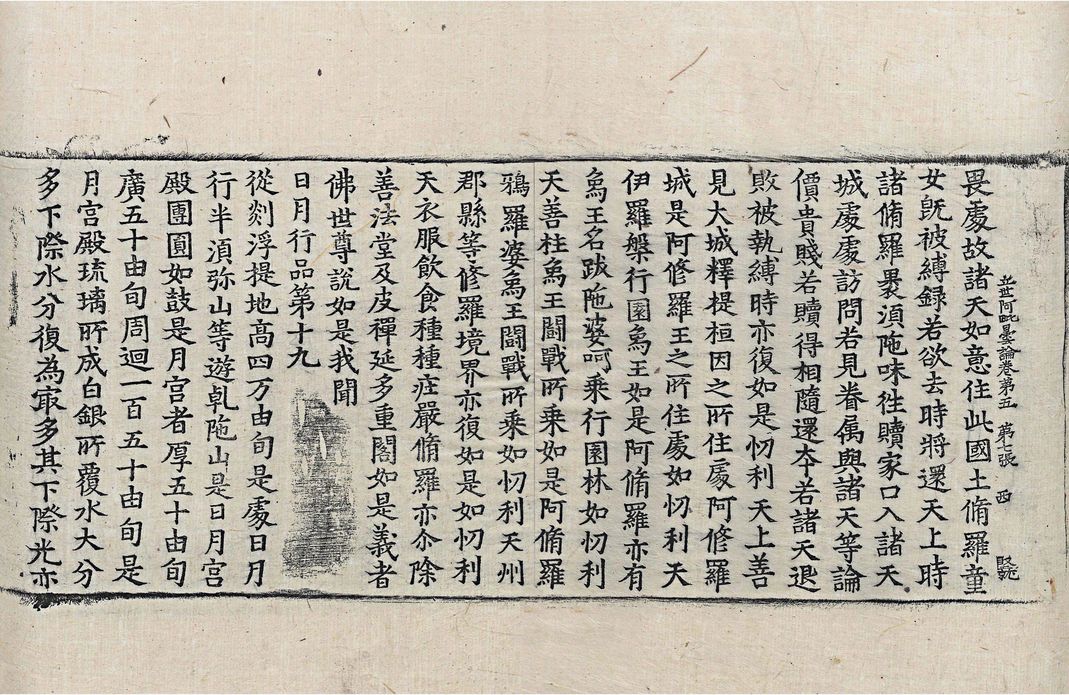 立世阿毗曇論卷第五 第七張 四
畏處故諸天如意住此國土脩羅童
女旣被縛録若欲去時將還天上時
諸脩羅褁湏陁味徃贖家口入諸天
城處處訪問若見眷属與諸天等論
價貴賤若贖得相隨還夲若諸天退
敗被執縛時亦復如是忉利天上善
見大城釋提桓因之所住處阿修羅
城是阿修羅王之所住處如忉利天
伊羅槃行園象王如是阿脩羅亦有
象王名跋陁婆呵乘行園林如忉利
天善柱象王鬪戰所乘如是阿脩羅
鵶羅婆象王鬪戰所乘如忉利天州
郡縣等修羅境界亦復如是如忉利
天衣服飲食種種莊嚴脩羅亦尒除
善法堂及皮禪延多重閣如是義者
佛世尊說如是我聞
日月行品第十九
從剡浮提地高四万由旬是處日月
行半湏弥山等遊乹陁山是日月宮
殿團圓如鼓是月宮者厚五十由旬
廣五十由旬周迴一百五十由旬是
月宮殿琉璃所成白銀所覆水大分
多下際水分復為㝡多其下際光亦